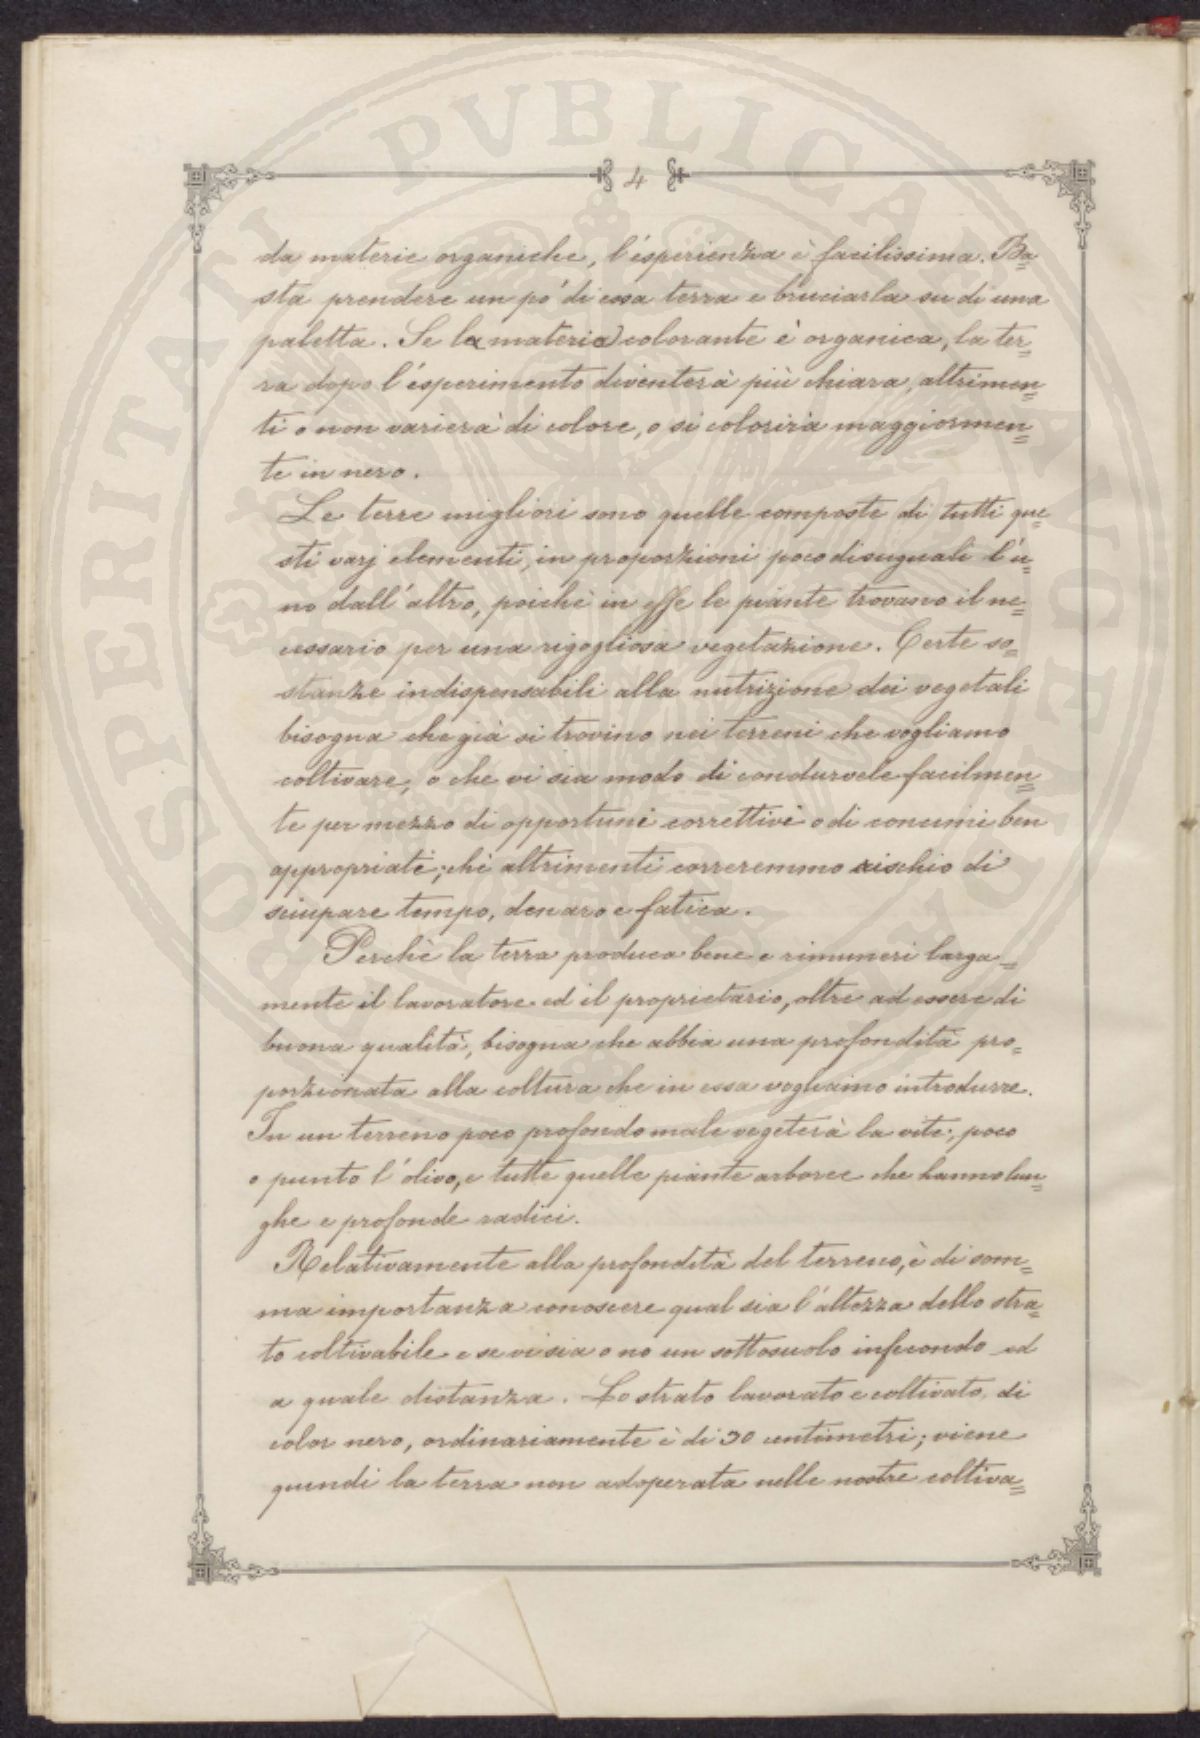 4
da materie organiche, l'esperienza è facilissima. Ba=
sta prendere un po' di essa terra e bruciarla su di una
paletta. Se la materia colorante è organica, la ter=
ra dopo l'esperimento diventerà più chiara, altrimen=
ti o non varierà di colore, o si colorirà maggiormen=
te in nero.
Le terre migliori sono quelle composte di tutti que=
sti varj elementi, in proporzioni poco disuguali l'u=
no dall'altro, poichè in esse le piante trovano il ne=
cessario per una rigogliosa vegetazione. Certe so=
stanze indispensabili alla nutrizione dei vegetali
bisogna che già si trovino nei terreni che vogliamo
coltivare, o che vi sia modo di condurvele facilmen=
te per mezzo di opportuni correttivi o di concimi ben
appropriati; chè altrimenti correremmo rischio di
sciupare tempo, denaro e fatica.
Perchè la terra produca bene e rimuneri larga=
mente il lavoratore ed il proprietario, oltre ad essere di
buona qualità, bisogna che abbia una profondità pro=
porzionata alla coltura che in essa vogliamo introdurre.
In un terreno poco profondo male vegeterà la vite; poco
o punto l'olivo, e tutte quelle piante arboree che hanno lun=
ghe e profonde radici.
Relativamente alla profondità del terreno, è di som=
ma importanza conoscere qual sia l'altezza dello stra=
to coltivabile e se vi sia o no un sottosuolo infecondo ed
a quale distanza. Lo strato lavorato e coltivato, di
color nero, ordinariamente è di 30 centimetri; viene
quindi la terra non adoperata nelle nostre coltiva=
SOSPERITATI PVBLICAE AVGENDAE